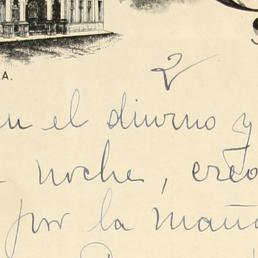 A.
2
en el diurno y
noche, creo
por la maña